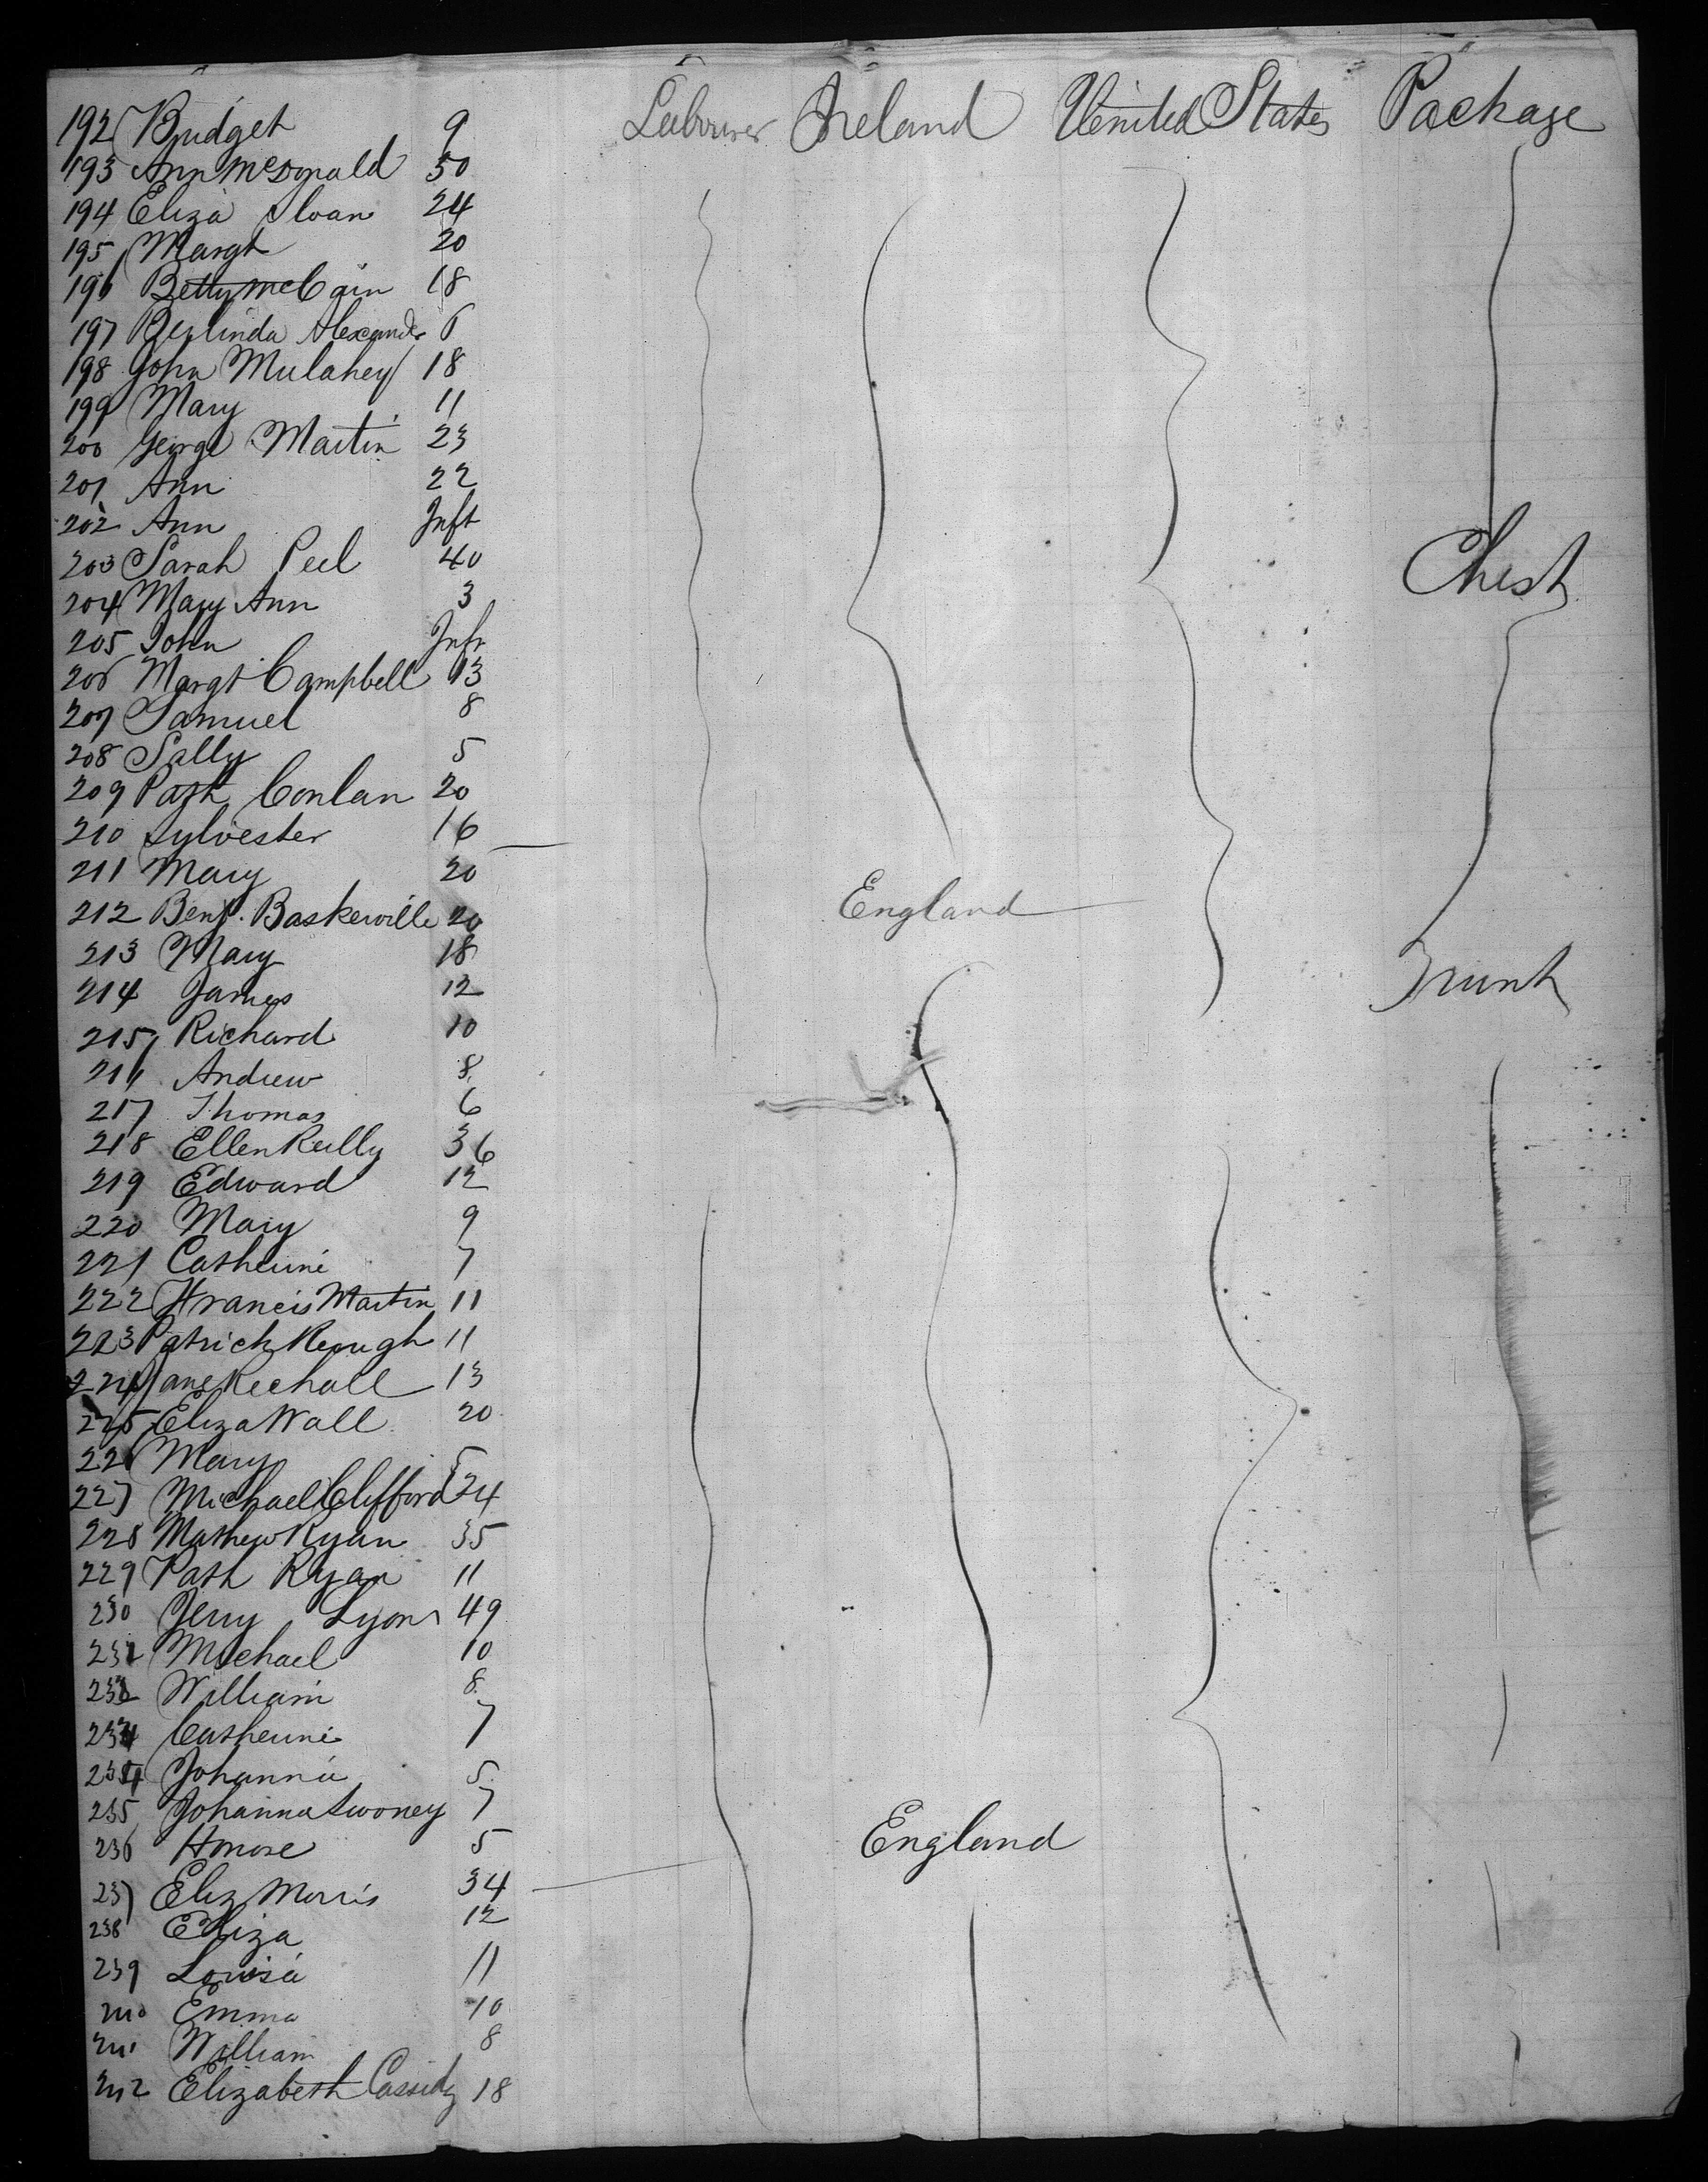 192 Bridget 9 Labourer Ireland United States Package
193 Ann McDonald 50
194 Eliza Sloan 24
195 Margt 20
196 Betty McCain 18
197 Berlinda Alexander 6
198 John Mulahey 18
199 Mary 11
200 George Martin 23
201 Ann 22
202 Ann Inft
203 Sarah Peel 40 Chest
204 Mary Ann 3
205 John Inft
206 Margt Campbell 13
207 Samuel 8
208 Sally 5
209 Patk Conlan 20
210 Sylvester 16
211 Mary 20
212 Benj. Baskerville 20 England
213 Mary 18
214 James 12 Trunk
215 Richard 10
216 Andrew 8
217 Thomas 6
218 Ellen Reilly 36
219 Edward 12
220 Mary 9
221 Catherine 7
222 Francis Martin 11
223 Patrick Keough 11
224 Jane 13
225 Eliza Wall 20
226 Mary 5
227 Michael Clifford 24
228 Mathew Ryan 35
229 Patk Ryan 11
230 Jerry Lyons 49
231 Michael 10
232 William 8
233 Catherine 7
234 Johanna 5
235 Johanna Twoney 7
236 Honore 5 England
237 Eliz Morris 34
238 Eliza 12
239 Louisa 11
240 Emma 10
241 William 8
242 Elizabeth Cassidy 18